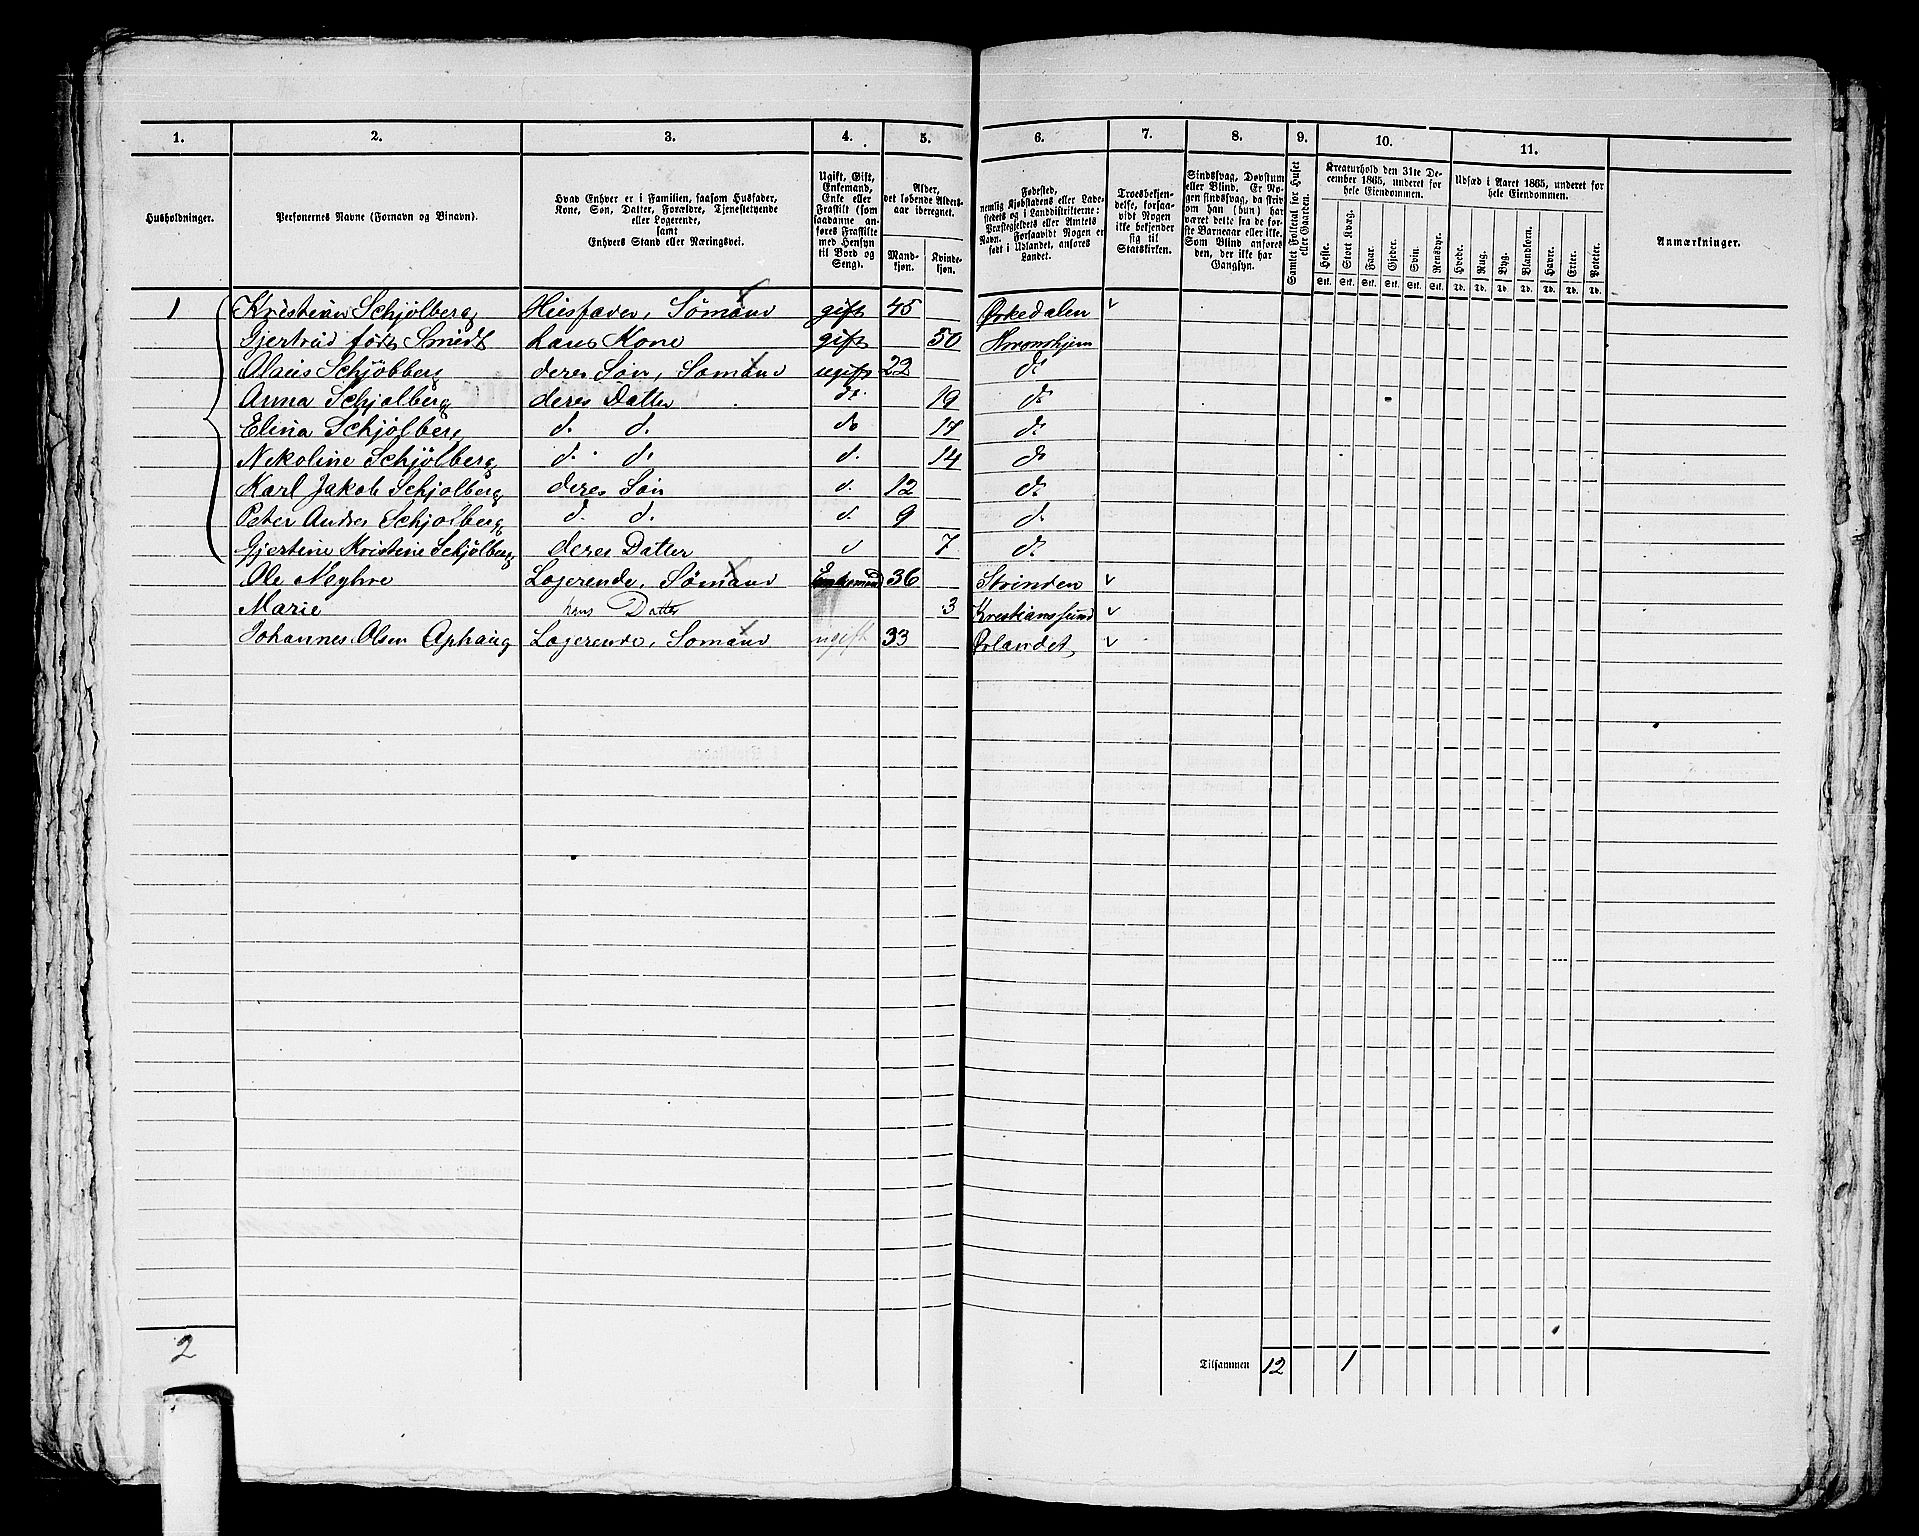 1. 2. 3. 4. 5. 6. 7. 8. 9. 10. 11.
Husholdninger.
Personernes Navne (Fornavn og Binavn).
Hvad Enhver er i Familien, saasom Husfader, Kone, Søn, Datter, Forældre, Tjenestetyende eller Logerende, samt Enhvers Stand eller Næringsvei.
Ugift, Gift, Enkemand, Enke eller Fraskilt (som saadanne anføres Fraskilte med Hensyn til Bord og Seng).
Alder, det løbende Aldersaar iberegnet. Mandkjøn. Kvindekjøn.
Fødested, nemlig Kjøbstadens eller Ladestedets og i Landdistrikterne: Præstegjeldets eller Amtets Navn. Forsaavidt Nogen er født i Udlandet, anføres Landet.
Troesbekjendelse, forsaavidt Nogen ikke bekjender sig til Statskirken.
Sindssvag, Døvstum eller Blind. Er Nogen sindssvag, da skriv om han (hun) har været dette fra de første Barneaar eller ikke. Som Blind anføres den, der ikke har Gangsyn.
Samlet Folketal for Huset eller Gaarden.
Kreaturhold den 31te December 1865, underet for hele Eiendommen. Heste. Stort Kvæg. Faar. Gjeder. Svin. Rensdyr.
Udsæd i Aaret 1865, underet for hele Eiendommen. Hvede. Rug. Byg. Blandkorn. Havre. Erter. Poteter.
Anmærkninger.
Stk. Stk. Stk. Stk. Stk. Stk. Td. Td. Td. Td. Td. Td. Td.
1 Kristian Schjølberg Husfader, Sømand gift 45 Ørkedalen
Gjertrud født Smidt hans Kone gift 50 Thronhjem
Olaus Schjølberg deres Søn, Sømand ugift 22 do
Anna Schjølberg deres Datter do 19 do
Elina Schjølberg d. d. do 17 do
Nekoline Schjølberg d. d. d. 14 do
Karl Jakob Schjølberg deres Søn d. 12 do
Peter Andres Schjølberg d. d. d. 9 d.
Gjertine Kristine Schjølberg deres Datter d 7 d.
Ole Logerende, Sømand Enkemand 36 Strinden
Marie hans Datter 3 Kristianssund
Johannes Olsen Ophaug Logerende, Sømand ugift 33 Ørlandet
2 Tilsammen 12 1